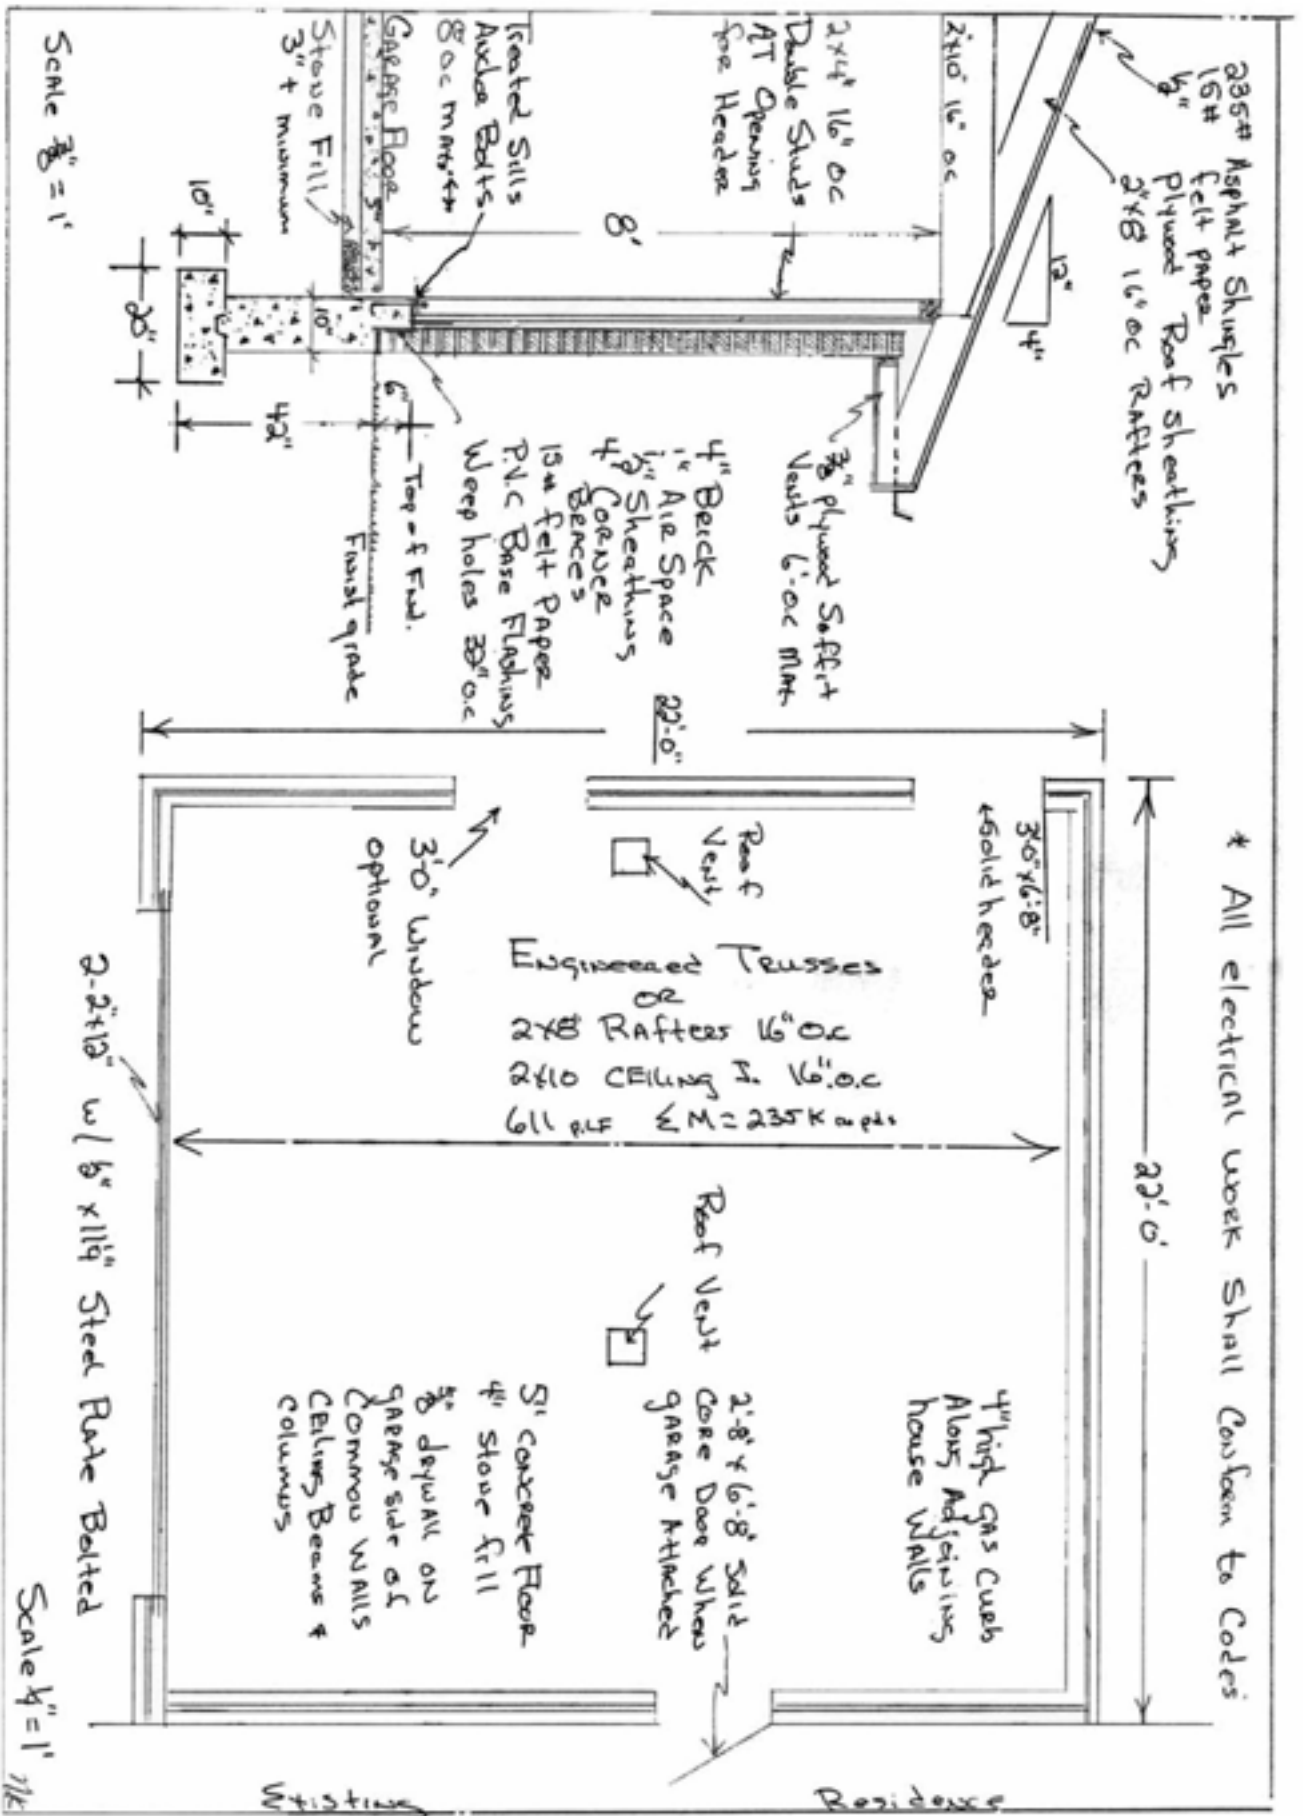 235# Asphalt Shingles
15# felt paper
1/2" Plywood Roof Sheathing
2"x8" 16" oc Rafters
12"
4"
2"x10" 16" oc
2x4" 16" oc
Double Studs
AT Opening
for Header
8'
Treated Sills
Anchor Bolts
8' oc max
Garage Floor
5"
Stone Fill
3" + minimum
10"
20"
10"
42"
6"
Top of Fnd.
Finish grade
3/8" plywood Soffit
Vents 6'-oc Max
4" Brick
1" Air Space
1/2" Sheathing
4' Corner
Braces
15# felt Paper
P.V.C Base Flashing
Weep holes 32" o.c
Scale 3/8" = 1'
* All electrical work Shall Conform to Codes
22'-0'
22'-0"
3'0"x6'-8"
Solid header
Roof
Vent
3'0" Window
optional
Engineered Trusses
OR
2x8 Rafters 16" O.c
2x10 CEiling J. 16".o.c
611 PLF Σ M = 235K
Roof Vent
4" high gas Curb
Along Adjoining
house Walls
2'-8" x 6'-8" Solid
Core Door When
garage Attached
5" Concrete Floor
4" Stone fill
5/8" drywall on
garage side of
Common Walls
Ceiling Beams &
Columns
2-2"x12" w/ 1/2" x 11 1/4" Steel Plate Bolted
Scale 1/4" = 1'
Existing
Residence